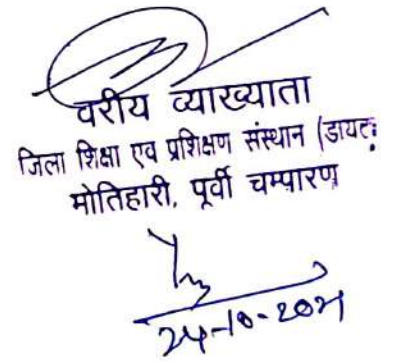 वरीय व्याख्याता
जिला शिक्षा एव प्रशिक्षण संस्थान (डायट:
मोतिहारी, पूर्वी चम्पारण